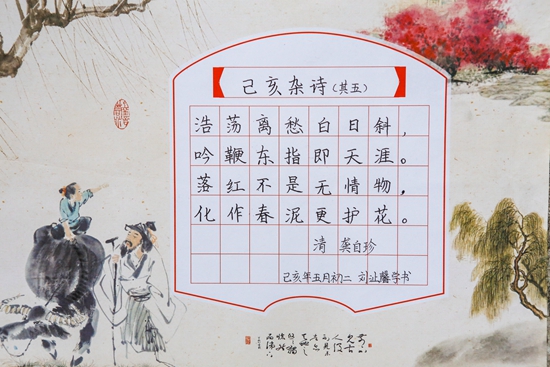 己亥杂诗(其五)
浩荡离愁白日斜，
吟鞭东指即天涯。
落红不是无情物，
化作春泥更护花。
清 龚自珍
己亥年五月初二 刘
学书